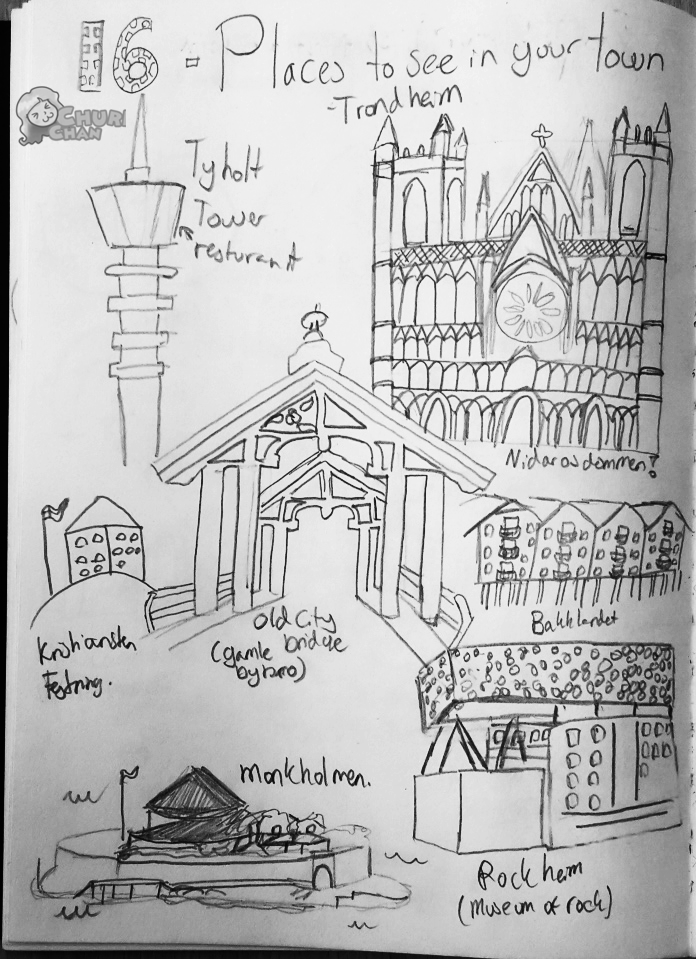 116 - Places to see in your town
-Trondheim
CHURI
CHAN
Tyholt
Tower
resturant
Nidarosdommen!
Kristiansten
Festning.
Old City
bridge
(gamle
bybro)
Bakklandet
Monkholmen.
Rockheim
(Museum of rock)